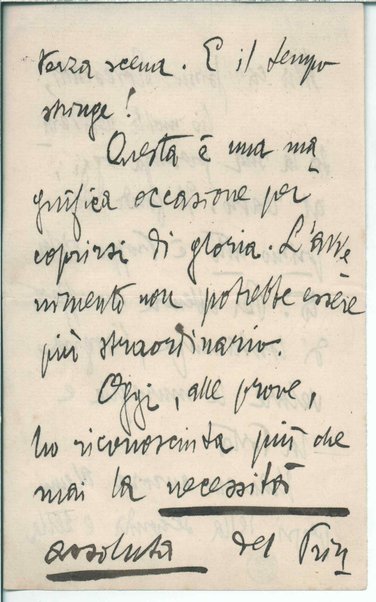 terza scena. E il tempo
stringe!
Questa è una ma
gnifica occasione per
coprirsi di gloria. L'avve
nimento non potrebbe essere
più straordinario.
Oggi, alle prove,
ho riconosciuta più che
mai la necessità
assoluta del